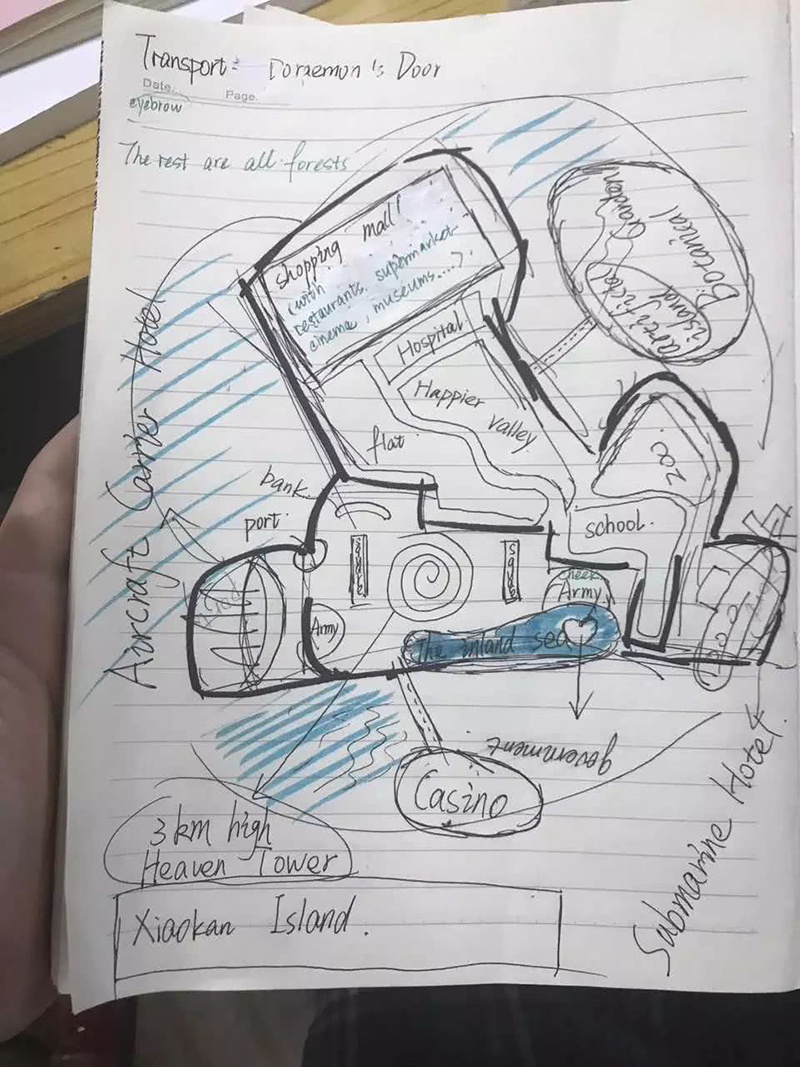 Transport: Doraemon's Door
Date.
Page.
eyebrow
The rest are all forests
shopping mall!
(with
restaurants. supermarket
cinema, museums....)
Botanical Garden
(artificial
island)
Hospital
Happier
valley
flat
zoo.
bank.
port.
school.
square
square
Army
Army
The inland sea
Aircraft Carrier Hotel
government
Casino
3 km high
Heaven Tower
Submarine Hotel.
Xiaokan Island.